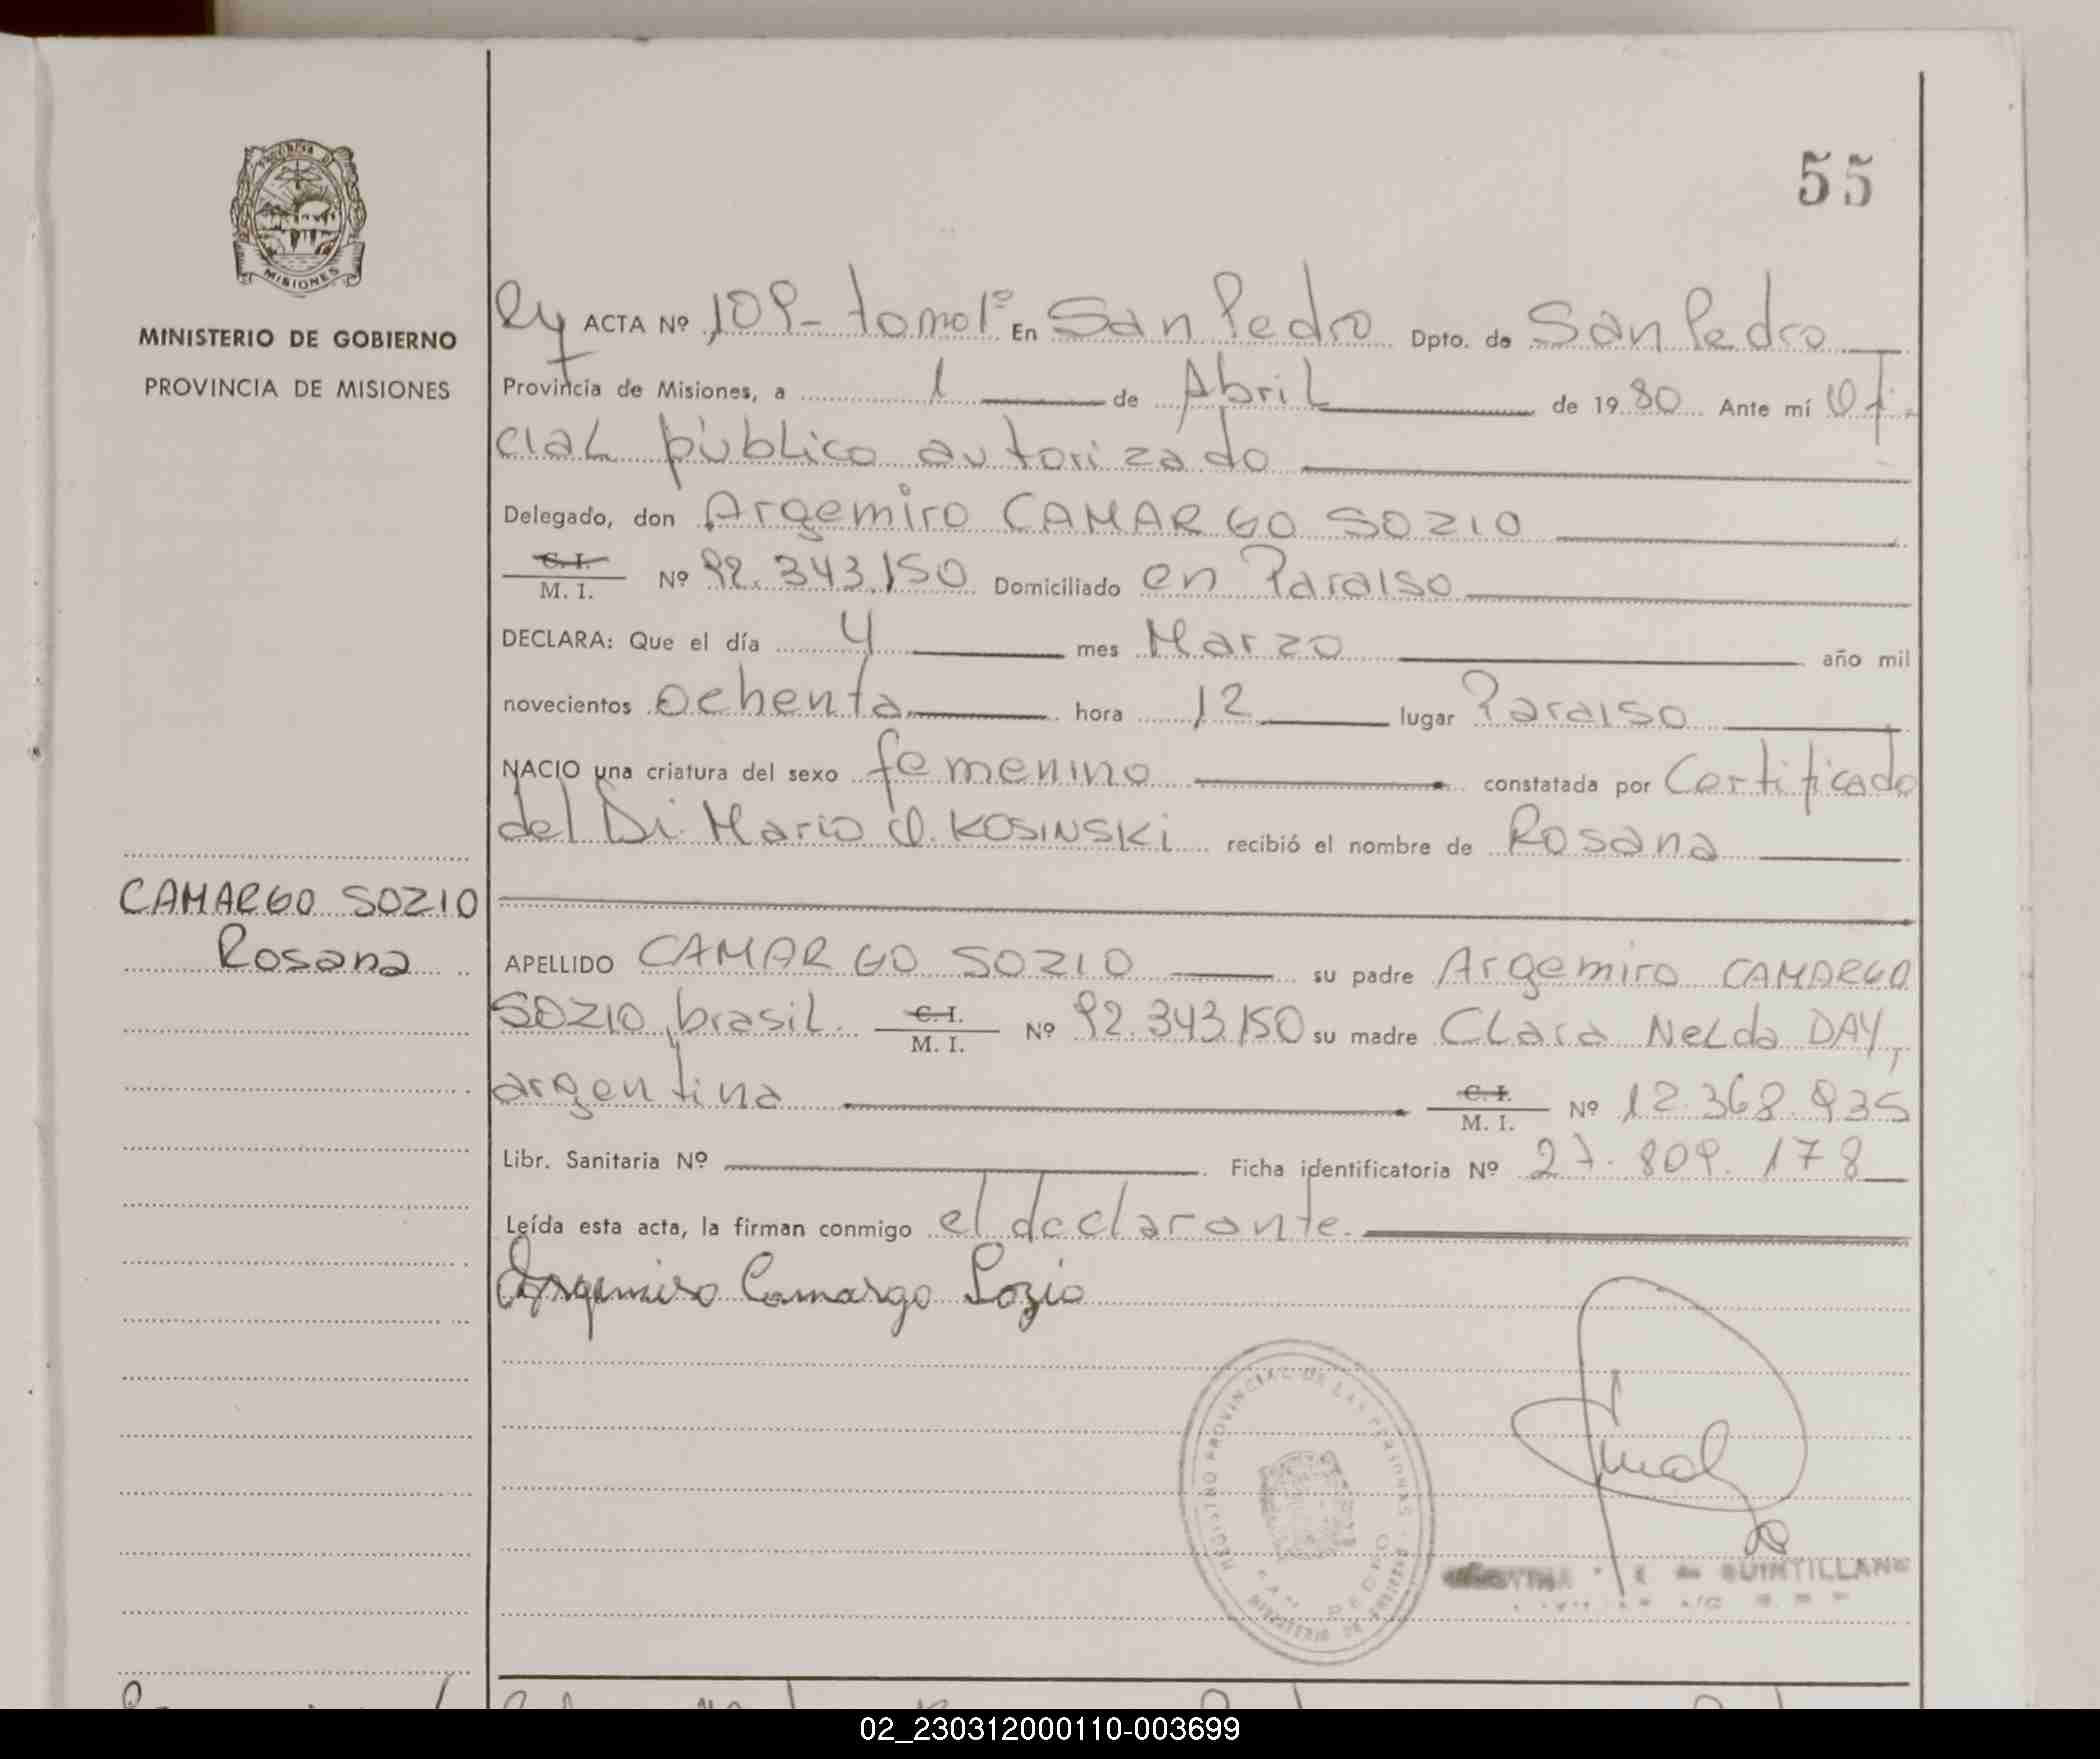 55
PROVINCIA DE
MISIONES
MINISTERIO DE GOBIERNO
PROVINCIA DE MISIONES
CAMARGO SOZIO
Rosana
ACTA Nº 109- tomo 1º En San Pedro Dpto. de San Pedro
Provincia de Misiones, a 1 de Abril de 1980 Ante mí Ofi
cial público autorizado
Delegado, don Argemiro CAMARGO SOZIO
C. I.
M. I. Nº 92.343.150 Domiciliado en Paraiso
DECLARA: Que el día 4 mes Marzo año mil
novecientos ochenta hora 12 lugar Paraiso
NACIO una criatura del sexo femenino constatada por Certificado
del Dr. Mario O. KOSINSKI recibió el nombre de Rosana
APELLIDO CAMARGO SOZIO su padre Argemiro CAMARGO
SOZIO, brasil. C. I.
M. I. Nº 92.343.150 su madre Clara Nelda DAY,
argentina C. I.
M. I. Nº 12.368.935
Libr. Sanitaria Nº Ficha identificatoria Nº 27.809.178
Leída esta acta, la firman conmigo el declarante.
Argemiro Camargo Sozio
REGISTRO PROVINCIAL DE LAS PERSONAS
MINISTERIO DE GOBIERNO
QUINTILLANO
02_230312000110-003699